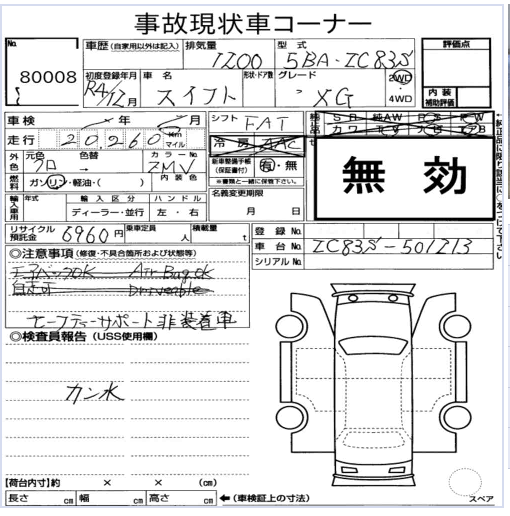 事故現状車コーナー
No. 80008
車歴 (自家用以外は記入) 排気量 1200 型式 5BA-ZC83S 評価点
初度登録年月 R4年12月 車名 スイフト 形状・ドア数 グレード XG 2WD・4WD
内装補助評価
車検 年 月 シフト FAT 純正品 SR 純AW PS PW
カワ TV ナビ エアB
走行 20,260 km マイル 冷房 AAC
外色 元色 クロ 色替 カラーNo. ZMV 内装色 新車整備手帳(保証書付) 有・無
※書類と一緒に保管下さい。
燃料 ガソリン・軽油・( )
無効
名義変更期限
月 日
輸入車用 年式 輸入区分 ハンドル
ディーラー・並行 左・右
リサイクル預託金 6960円 乗車定員 人 積載量 t
登録No.
車台No. ZC83S-501213
シリアルNo.
◎注意事項 (修復・不具合箇所および状態等)
エアバックOK Air Bag ok
自走可 Driveable
セーフティーサポート非装着車
◎検査員報告 (USS使用欄)
カン水
【荷台内寸】約 × × (cm)
長さ cm 幅 cm 高さ cm ←(車検証上の寸法)
スペア